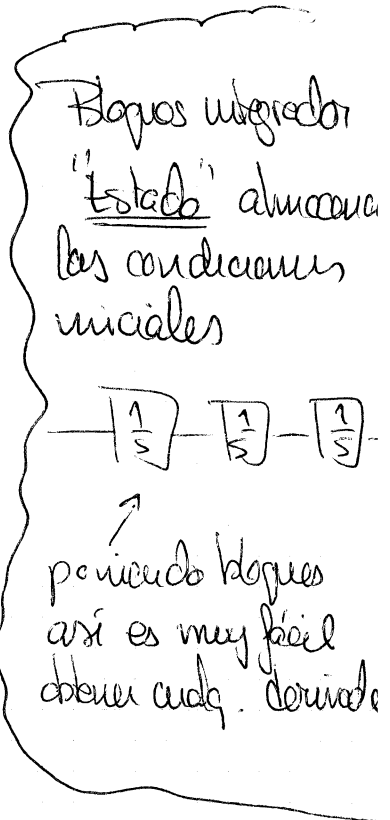 Bloques integrador
"Estado" almacena
las condiciones
iniciales
1/s 1/s 1/s
poniendo bloques
así es muy fácil
obtener cualq. derivada